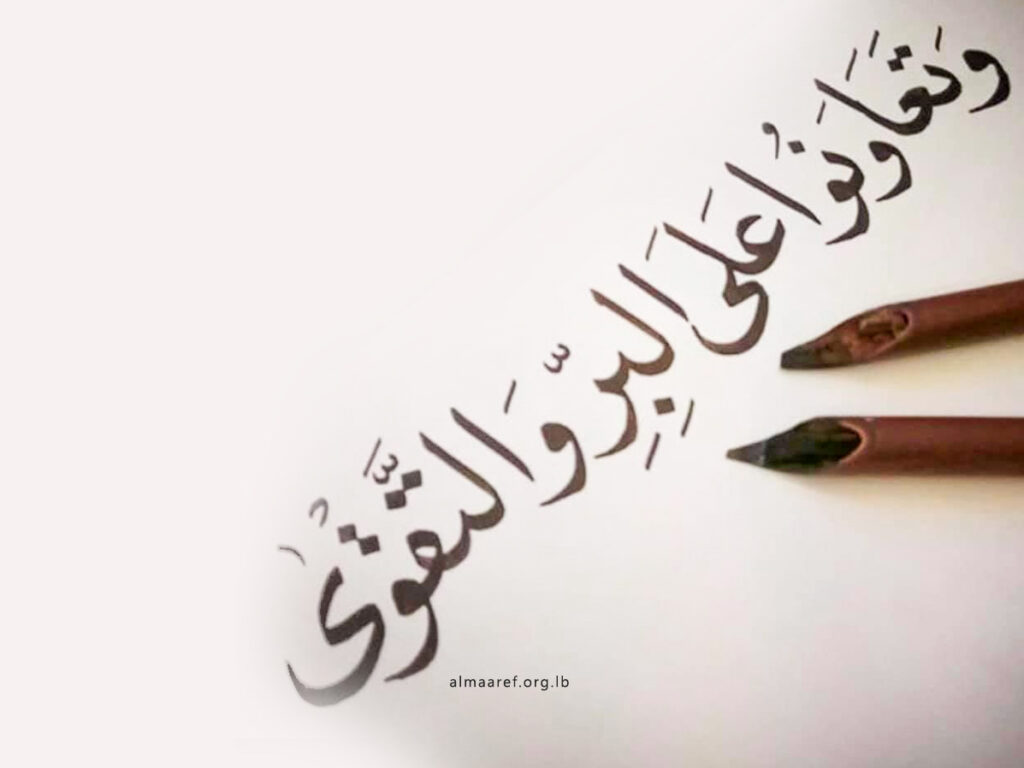 وَتَعَاوَنُوا عَلَى البِرِّ وَالتَّقْوٰى
almaaref.org.lb